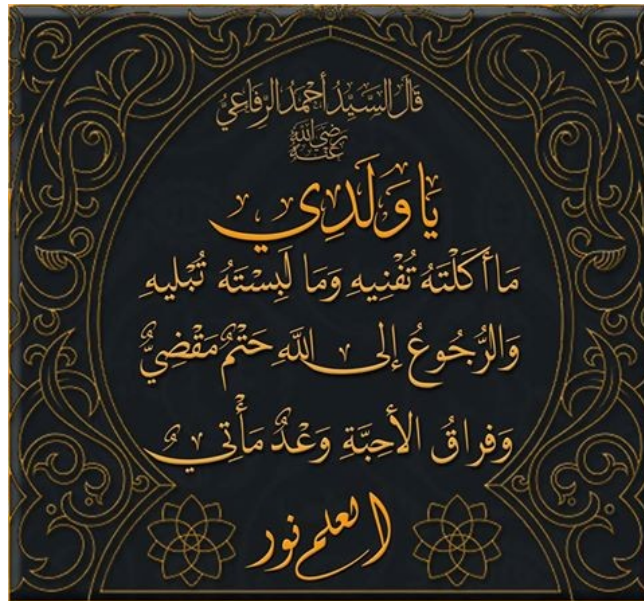 قَالَ السَّيِّدُ أَحْمَدُ الرِّفَاعِيُّ
رَضِيَ اللَّهُ عَنْهُ
يَا وَلَدِي
مَا أَكَلْتَهُ تُفْنِيهِ وَمَا لَبِسْتَهُ تُبْلِيهِ
وَالرُّجُوعُ إِلَى اللَّهِ حَتْمٌ مَقْضِيٌّ
وَفِرَاقُ الأَحِبَّةِ وَعْدٌ مَأْتِيٌّ
العلم نور